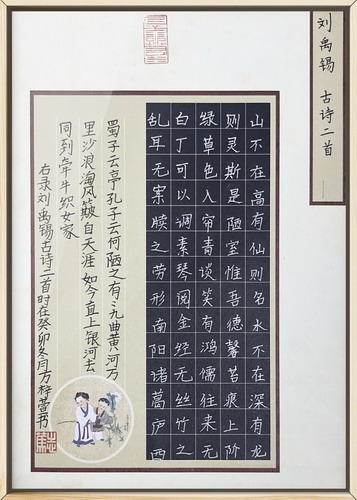 刘禹锡 古诗二首
山不在高有仙则名水不在深有龙
则灵斯是陋室惟吾德馨苔痕上阶
绿草色入帘青谈笑有鸿儒往来无
白丁可以调素琴阅金经无丝竹之
乱耳无案牍之劳形南阳诸葛庐西
蜀子云亭孔子云何陋之有 九曲黄河万
里沙浪淘风簸自天涯 如今直上银河去
同到牵牛织女家
右录刘禹锡古诗二首时在癸卯冬月万梓萱书